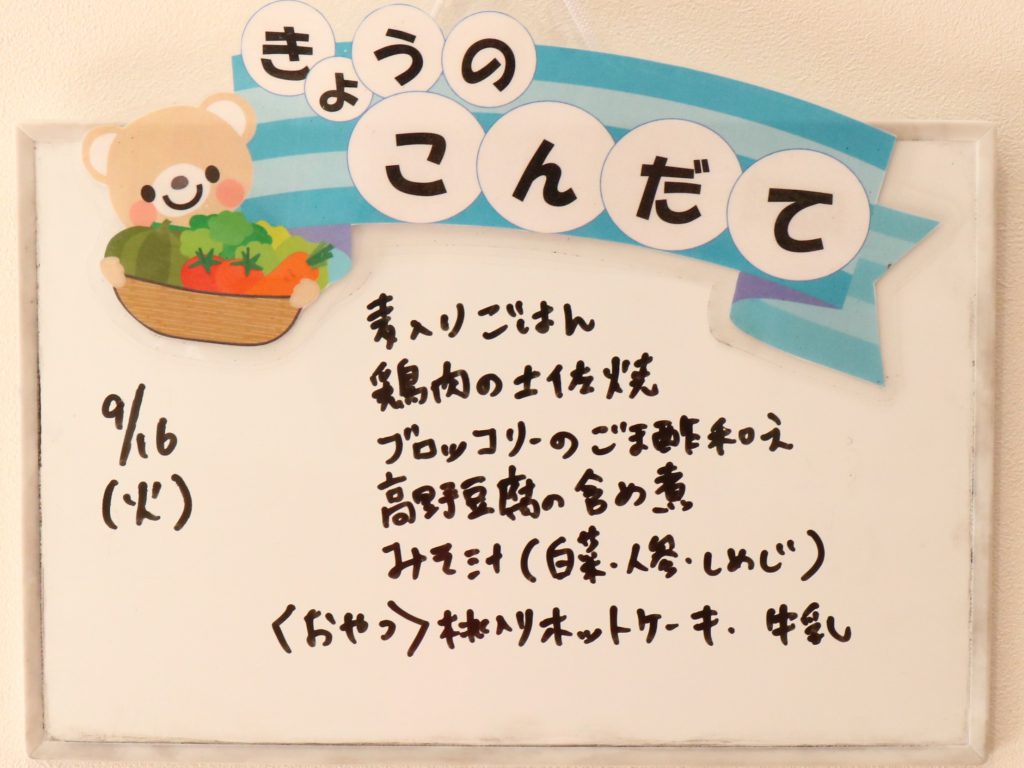 きょうの
こんだて
9/16
(火)
麦入りごはん
鶏肉の土佐焼
ブロッコリーのごま酢和え
高野豆腐の含め煮
みそ汁(白菜・人参・しめじ)
〈おやつ〉桃入りホットケーキ・牛乳